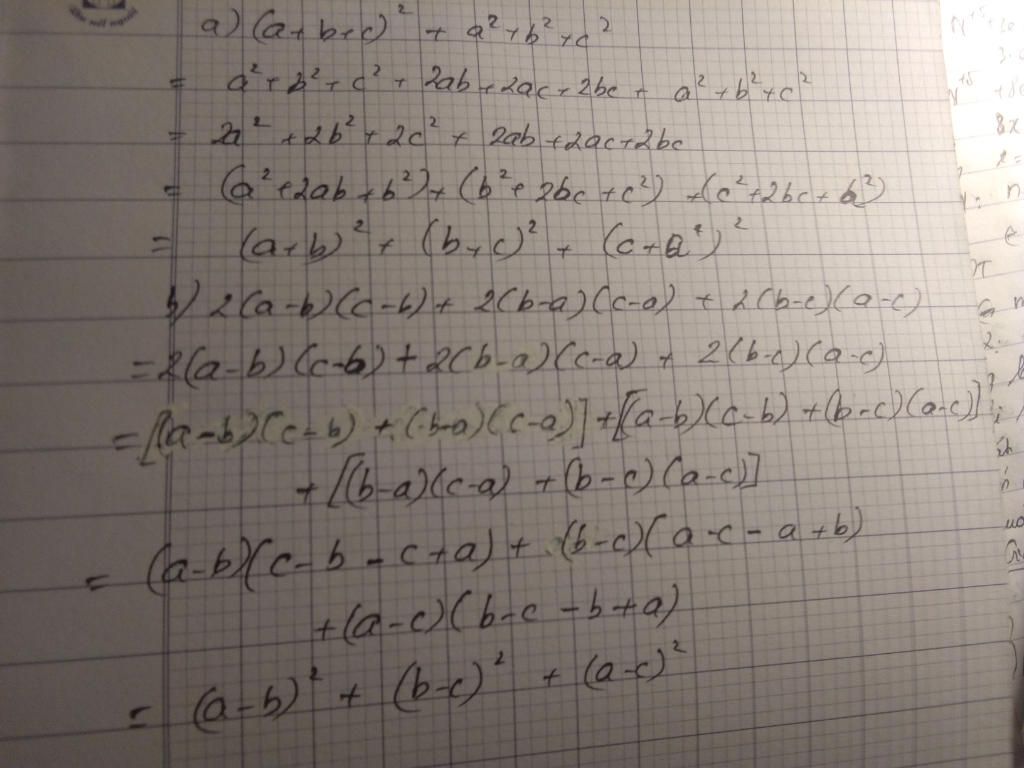 a) (a+b+c)² + a²+b²+c²
= a²+b²+c² + 2ab+2ac+2bc + a²+b²+c²
= 2a² +2b²+2c² + 2ab+2ac+2bc
= (a²+2ab+b²)+(b²+2bc+c²) +(c²+2bc+a²)
= (a+b)² + (b+c)² + (c+a)²
b) 2(a-b)(c-b)+ 2(b-a)(c-a) + 2(b-c)(a-c)
=2(a-b)(c-b)+2(b-a)(c-a) + 2(b-c)(a-c)
=[(a-b)(c-b) +(b-a)(c-a)]+[(a-b)(c-b) +(b-c)(a-c)]
+ [(b-a)(c-a) +(b-c)(a-c)]
= (a-b)(c-b-c+a) + (b-c)(a-c-a+b)
+(a-c)(b-c-b+a)
= (a-b)² + (b-c)² + (a-c)²